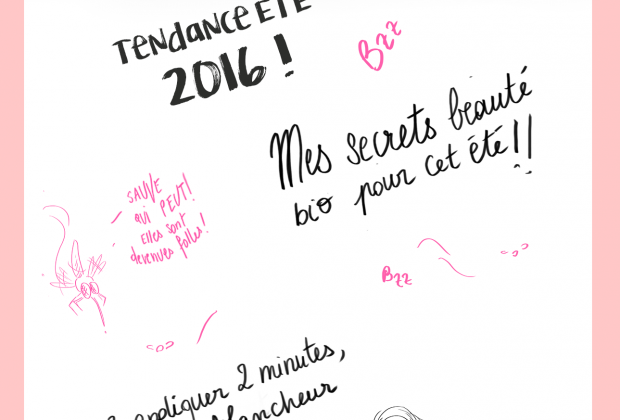 TENDANCE ÉTÉ
2016 !
Bzz
Mes secrets beauté
bio pour cet été !!
SAUVE
QUI PEUT !
Elles sont
devenues folles !
Bzz
appliquer 2 minutes,
blancheur